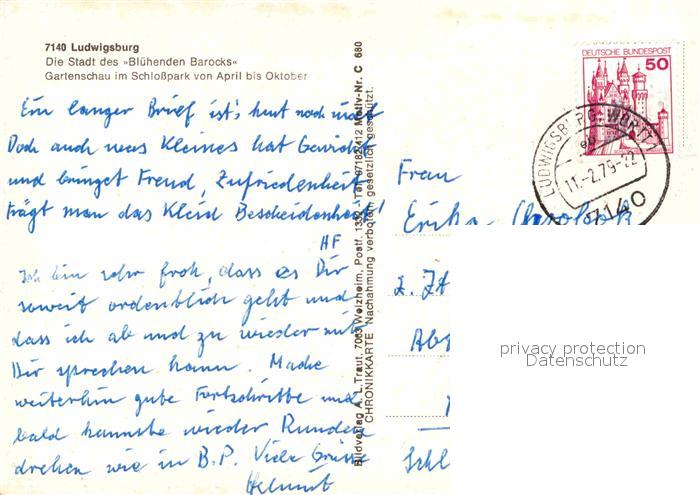 7140 Ludwigsburg
Die Stadt des »Blühenden Barocks«
Gartenschau im Schloßpark von April bis Oktober
Ein langer Brief ist's heut noch nicht
Doch auch was Kleines hat Gewicht
und bringet Freud, Zufriedenheit
Trägt man das Kleid Bescheidenheit!
HF
Ich bin sehr froh, dass es Dir
soweit ordentlich geht und
dass ich ab und zu wieder mit
Dir sprechen kann. Mache
weiterhin gute Fortschritte und
bald kannste wieder Runden
drehen wie in B.P. Viele Grüsse
Helmut
Bildverlag A. L. Traut, 7063 Welzheim, Postf. 1332 · Tel. 07182/412 Motiv-Nr. C 680
CHRONIKKARTE Nachahmung verboten, gesetzlich geschützt.
DEUTSCHE BUNDESPOST
50
LUDWIGSBURG, WÜRTT
eb
11.-2.79-22
7140
Frau
z. Zt
Schl
privacy protection
Datenschutz